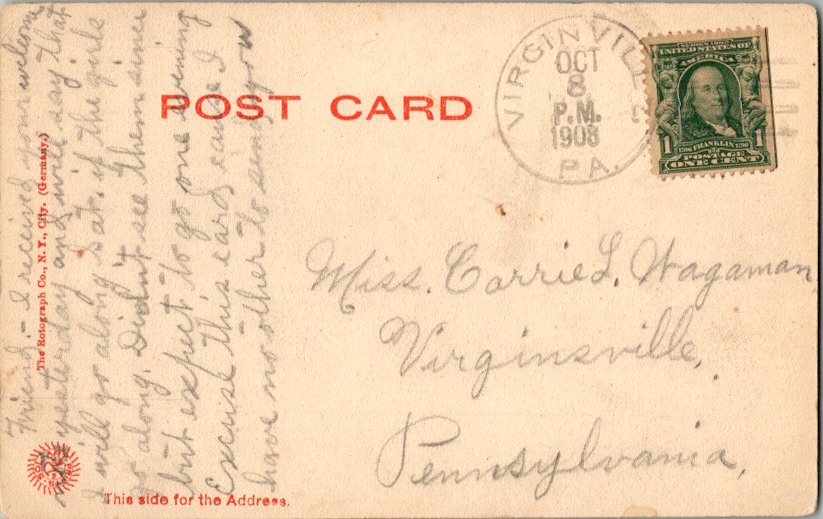 POST CARD
VIRGINVILLE
OCT
8
P.M.
1908
PA.
SERIES 1902
UNITED STATES OF
AMERICA
1 1
1706 FRANKLIN 1790
POSTAGE
ONE CENT
Friend:- I received your welcome
yesterday and will say that
I will go along Sat. if the girls
go along. Didn't see them since
but expect to go one evening
Excuse this card cause I
have no other to send you
The Rotograph Co., N. Y., City. (Germany.)
Miss. Carrie L. Wagaman
Virginsville,
Pennsylvania,
This side for the Address.